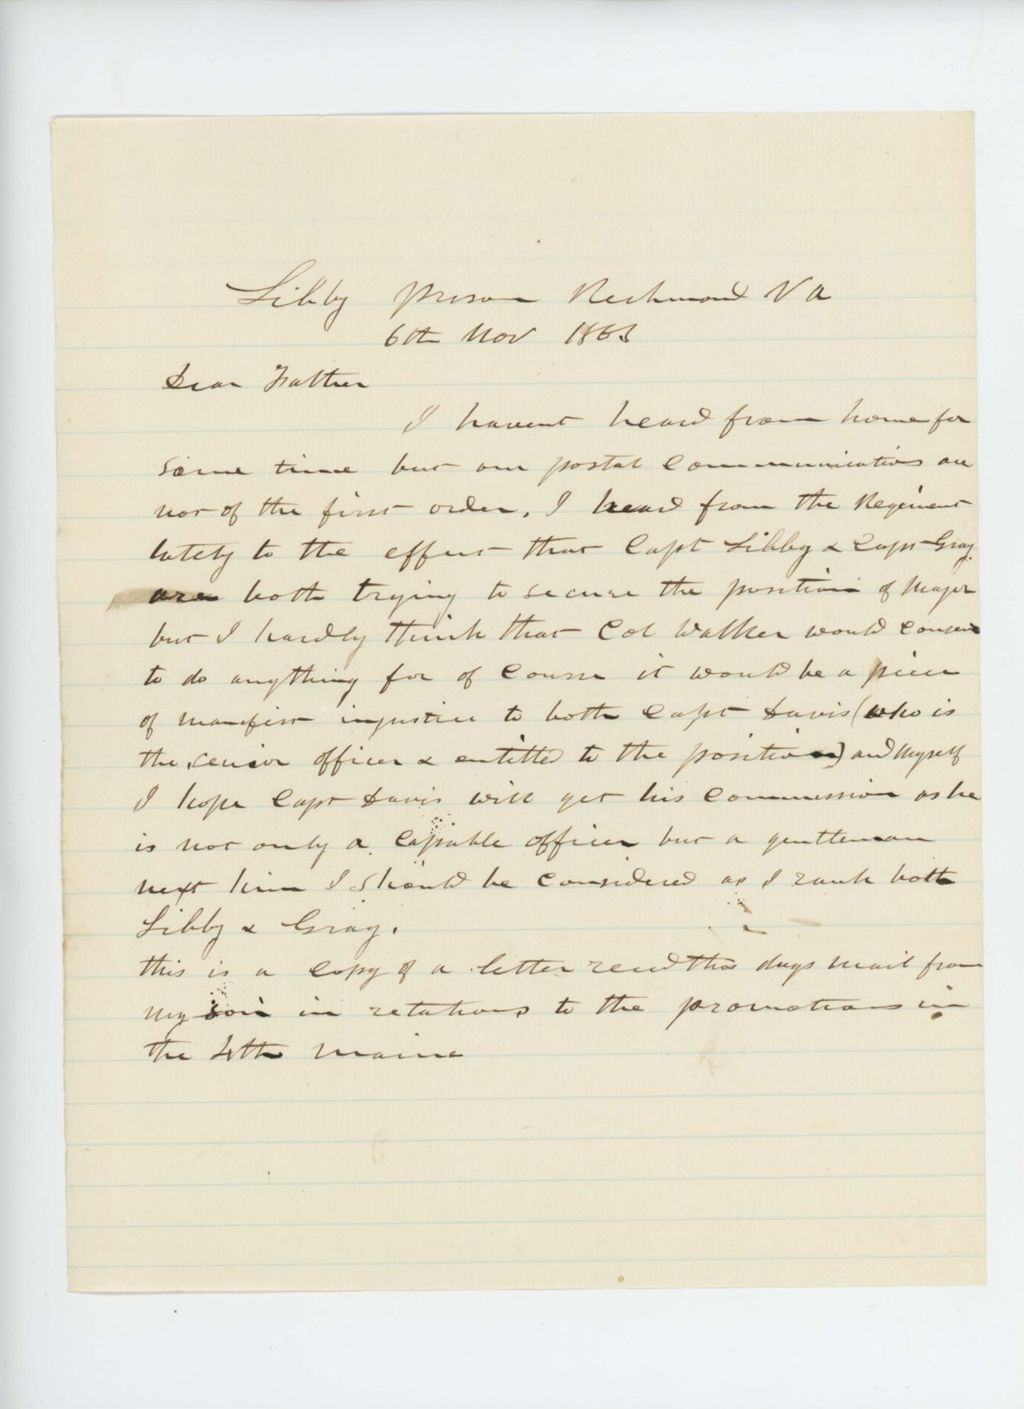 Libby prison Richmond Va
6th Nov 1863
Dear Father
I havent heard from home for
some time but our postal communications are
not of the first order. I heard from the Regiment
lately to the effect that Capt Libby & Capt Gray
are both trying to secure the position of Major
but I hardly think that Col Walker would consent
to do anything for of course it would be a piece
of manifest injustice to both Capt Davis (who is
the senior officer & entitled to the position) and myself
I hope Capt Davis will get his commission as he
is not only a capable officer but a gentleman
next him I should be considered as I rank both
Libby & Gray.
this is a copy of a letter recd this days mail from
my son in relations to the promotions in
the 4th Maine